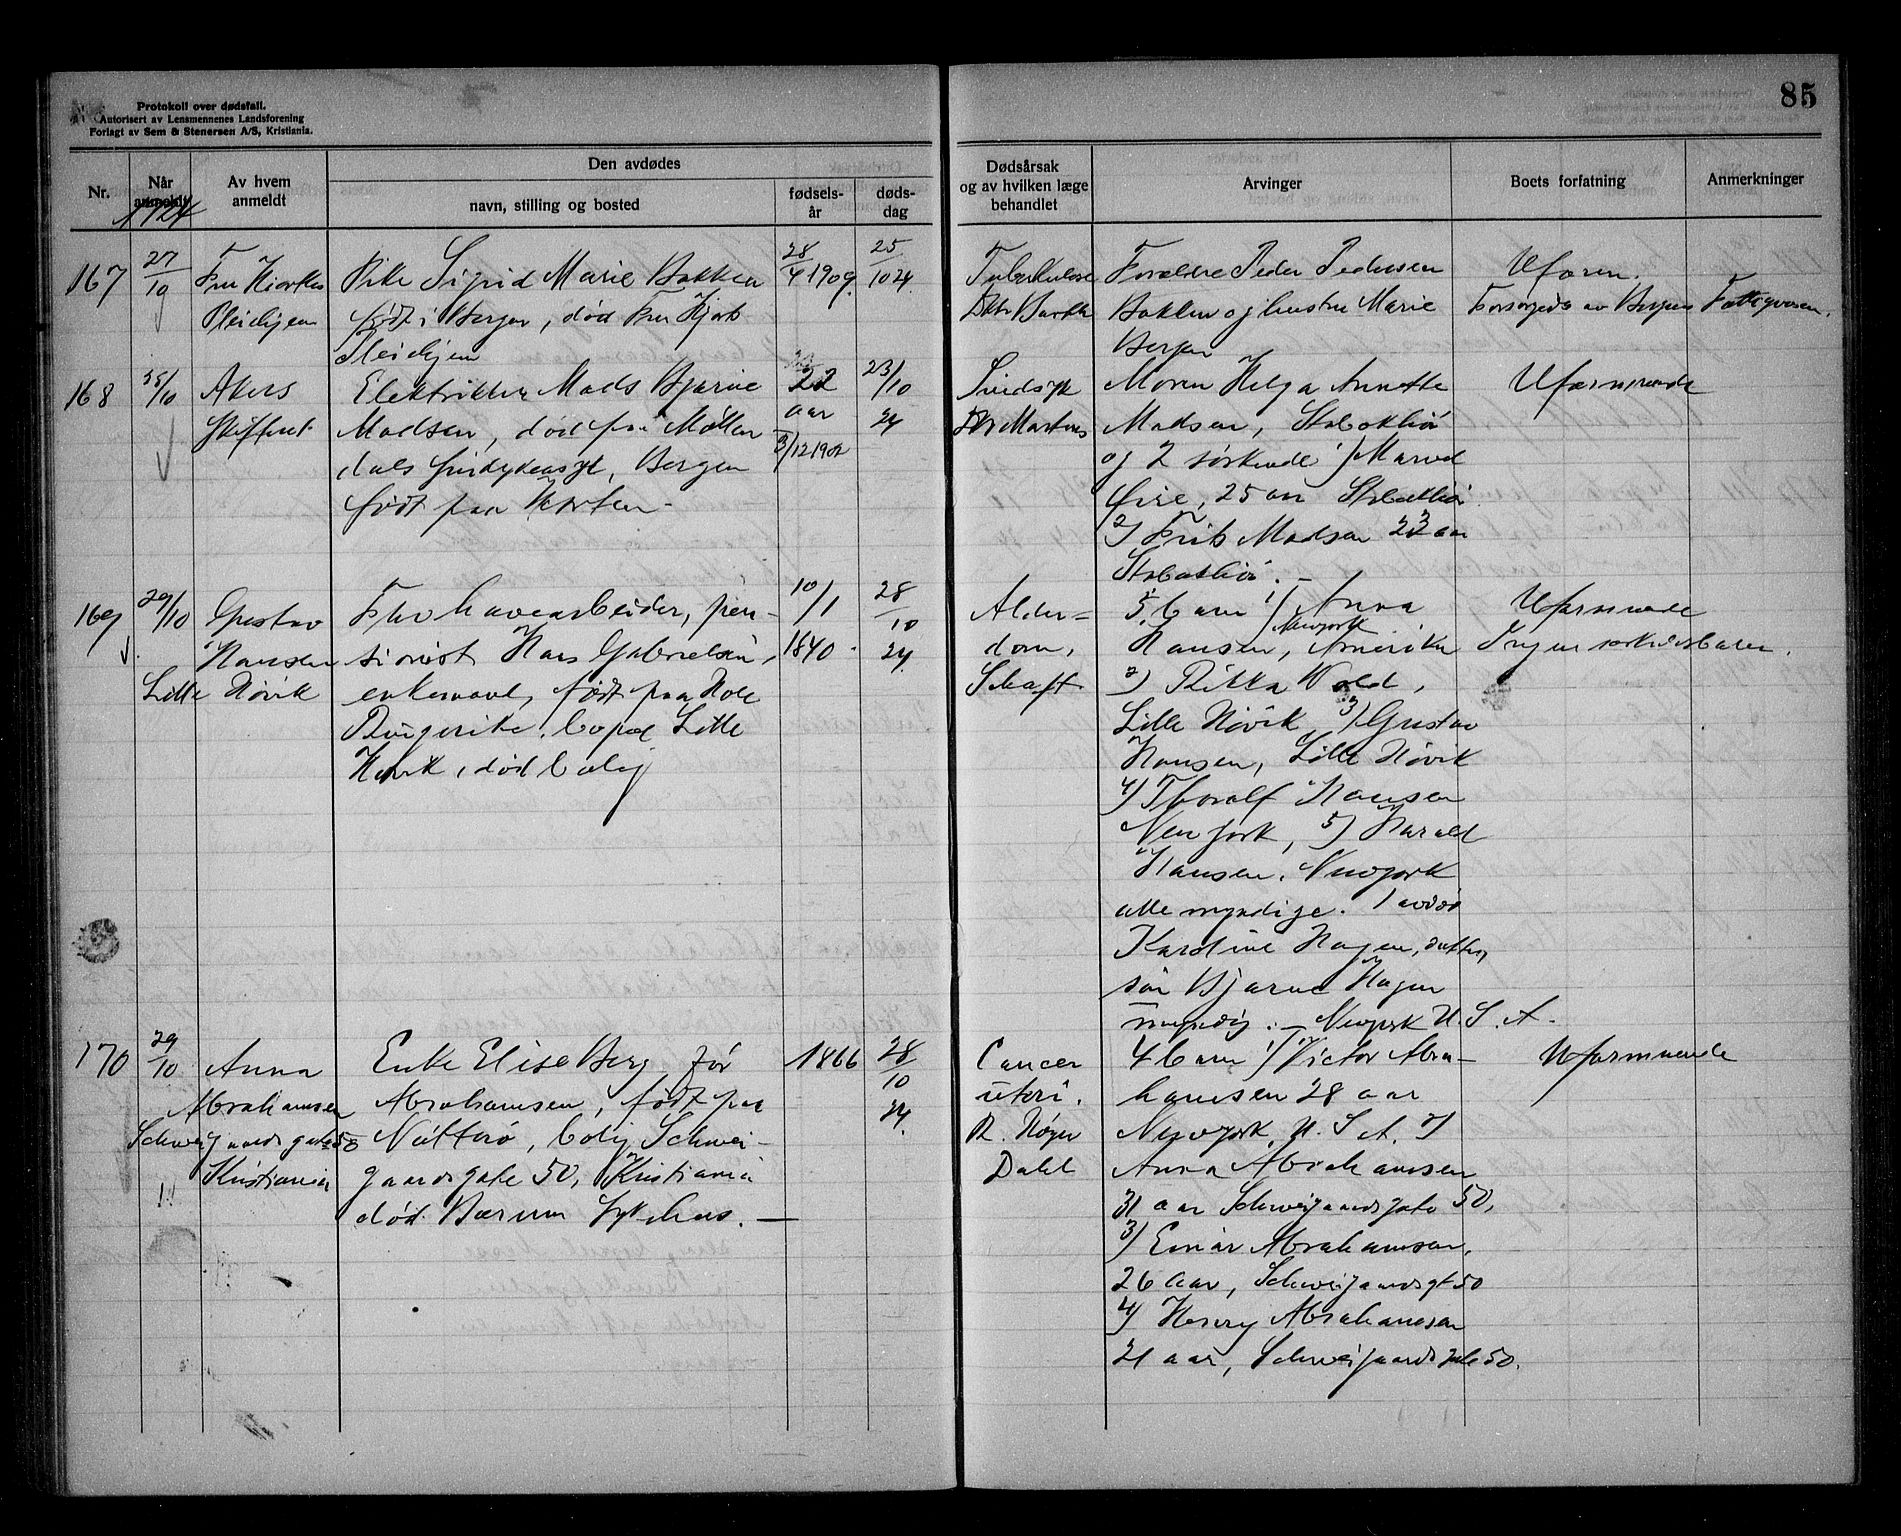 Protokoll over dødsfall.
Autorisert av Lensmennenes Landsforening
Forlagt av Sem & Stenersen A/S, Kristiania.
85
Nr.
Når anmeldt
1924
Av hvem anmeldt
Den avdødes
navn, stilling og bosted
fødsels-år
døds-dag
Dødsårsak
og av hvilken læge
behandlet
Arvinger
Boets forfatning
Anmerkninger
167
27/10
Fru
Pleiehjem
Pike Sigrid Marie Bakken
født i Bergen, død Fru Hjorts
Pleiehjem
28/4 1909.
25/10 24.
Tuberkulose
Dktr Barth
Forældre Peder Pedersen
Bakken og hustru Marie
Bergen
Uformuende
Forsørgeds av Bergens Fattigvesen.
168
25/10
Akers
Skifteret
Elektriker Mads Bjarne
Madsen, død paa Møllen
dals sindsykeasyl, Bergen
født paa Horten -
22
aar
3/12 1902
23/10
24
Sindsyk
Dr Martens
Moren Helga Annette
Madsen, Stabækhøi
og 2 søskende 1)
25 aar Stabækhøi
2) Frits Madsen 23 aar
Stabækhøi. -
Uformuende
169
29/10
Gustav
Hansen
Lille Høvik
Fhv havearbeider, pen-
sionist Hans Gabrielsen,
enkemand, født paa Hole
Ringerike, bopæl Lille
Høvik, død bolig
10/1
1840.
28/10
24.
Alder-
dom,
Schaft
5 barn 1) Anna
Hansen, Newyork Amerika
2) Rikka Wold,
Lille Høvik 3) Gustav
Hansen, Lille Høvik
4) Thoralf Hansen
New York, 5) Harald
Hansen, Newyork
alle myndige. 1 avdød
Karoline Hagen, datter,
søn Bjarne Hagen
myndig. - Newyork U. S. A.
Uformuende
Ingen
170
29/10
Anna
Abrahamsen
Schweigaardsgate 50
Kristiania
Enke Elise Berg, før
Abrahamsen, født paa
Nøtterø, bolig Schwei-
gaardsgate 50, Kristiania
død Bærum Sykehus. -
1866
28/10
24.
Cancer
uteri.
R. Høyer
Dahl
4 barn 1) Victor Abra-
hamsen 28 aar
Newyork, U. S. A. 2)
Anna Abrahamsen
31 aar Schweigaardsgate 50,
3) Einar Abrahamsen,
26 aar, Schweigaardsgt 50
4) Henry Abrahamsen
21 aar, Schweigaardsgate 50.
Uformuende